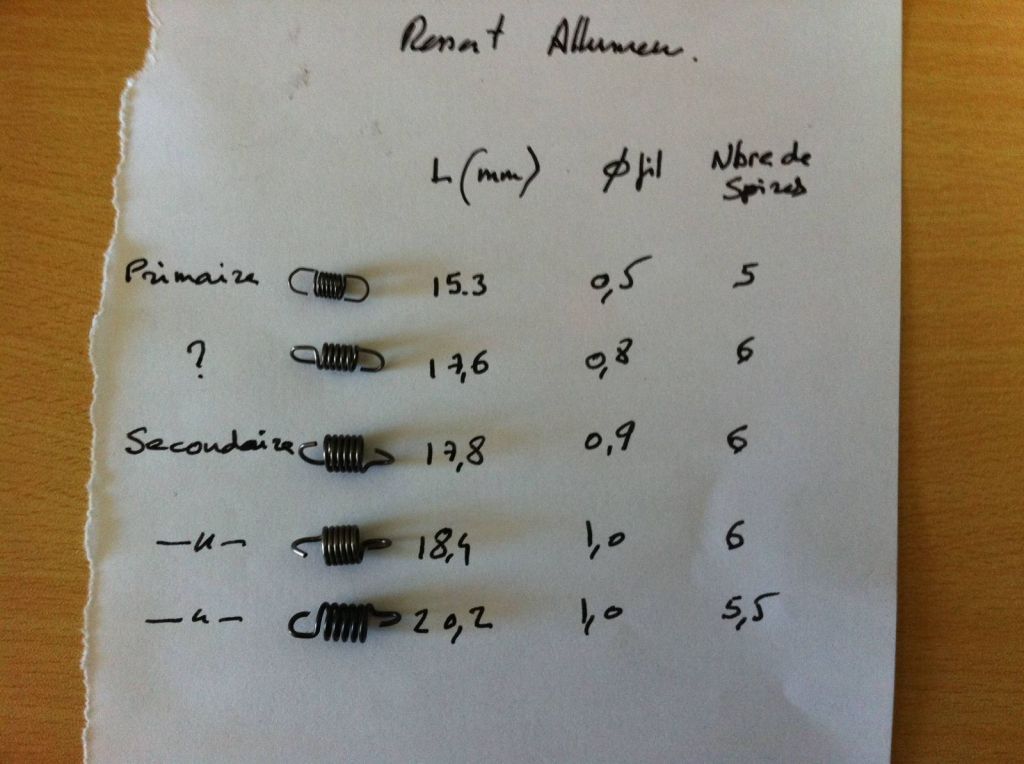 Ressort Allumeur.
L (mm) ϕ fil Nbre de Spires
Primaire 15.3 0,5 5
? 17,6 0,8 6
Secondaire 17,8 0,9 6
—"— 18,4 1,0 6
—"— 20,2 1,0 5,5